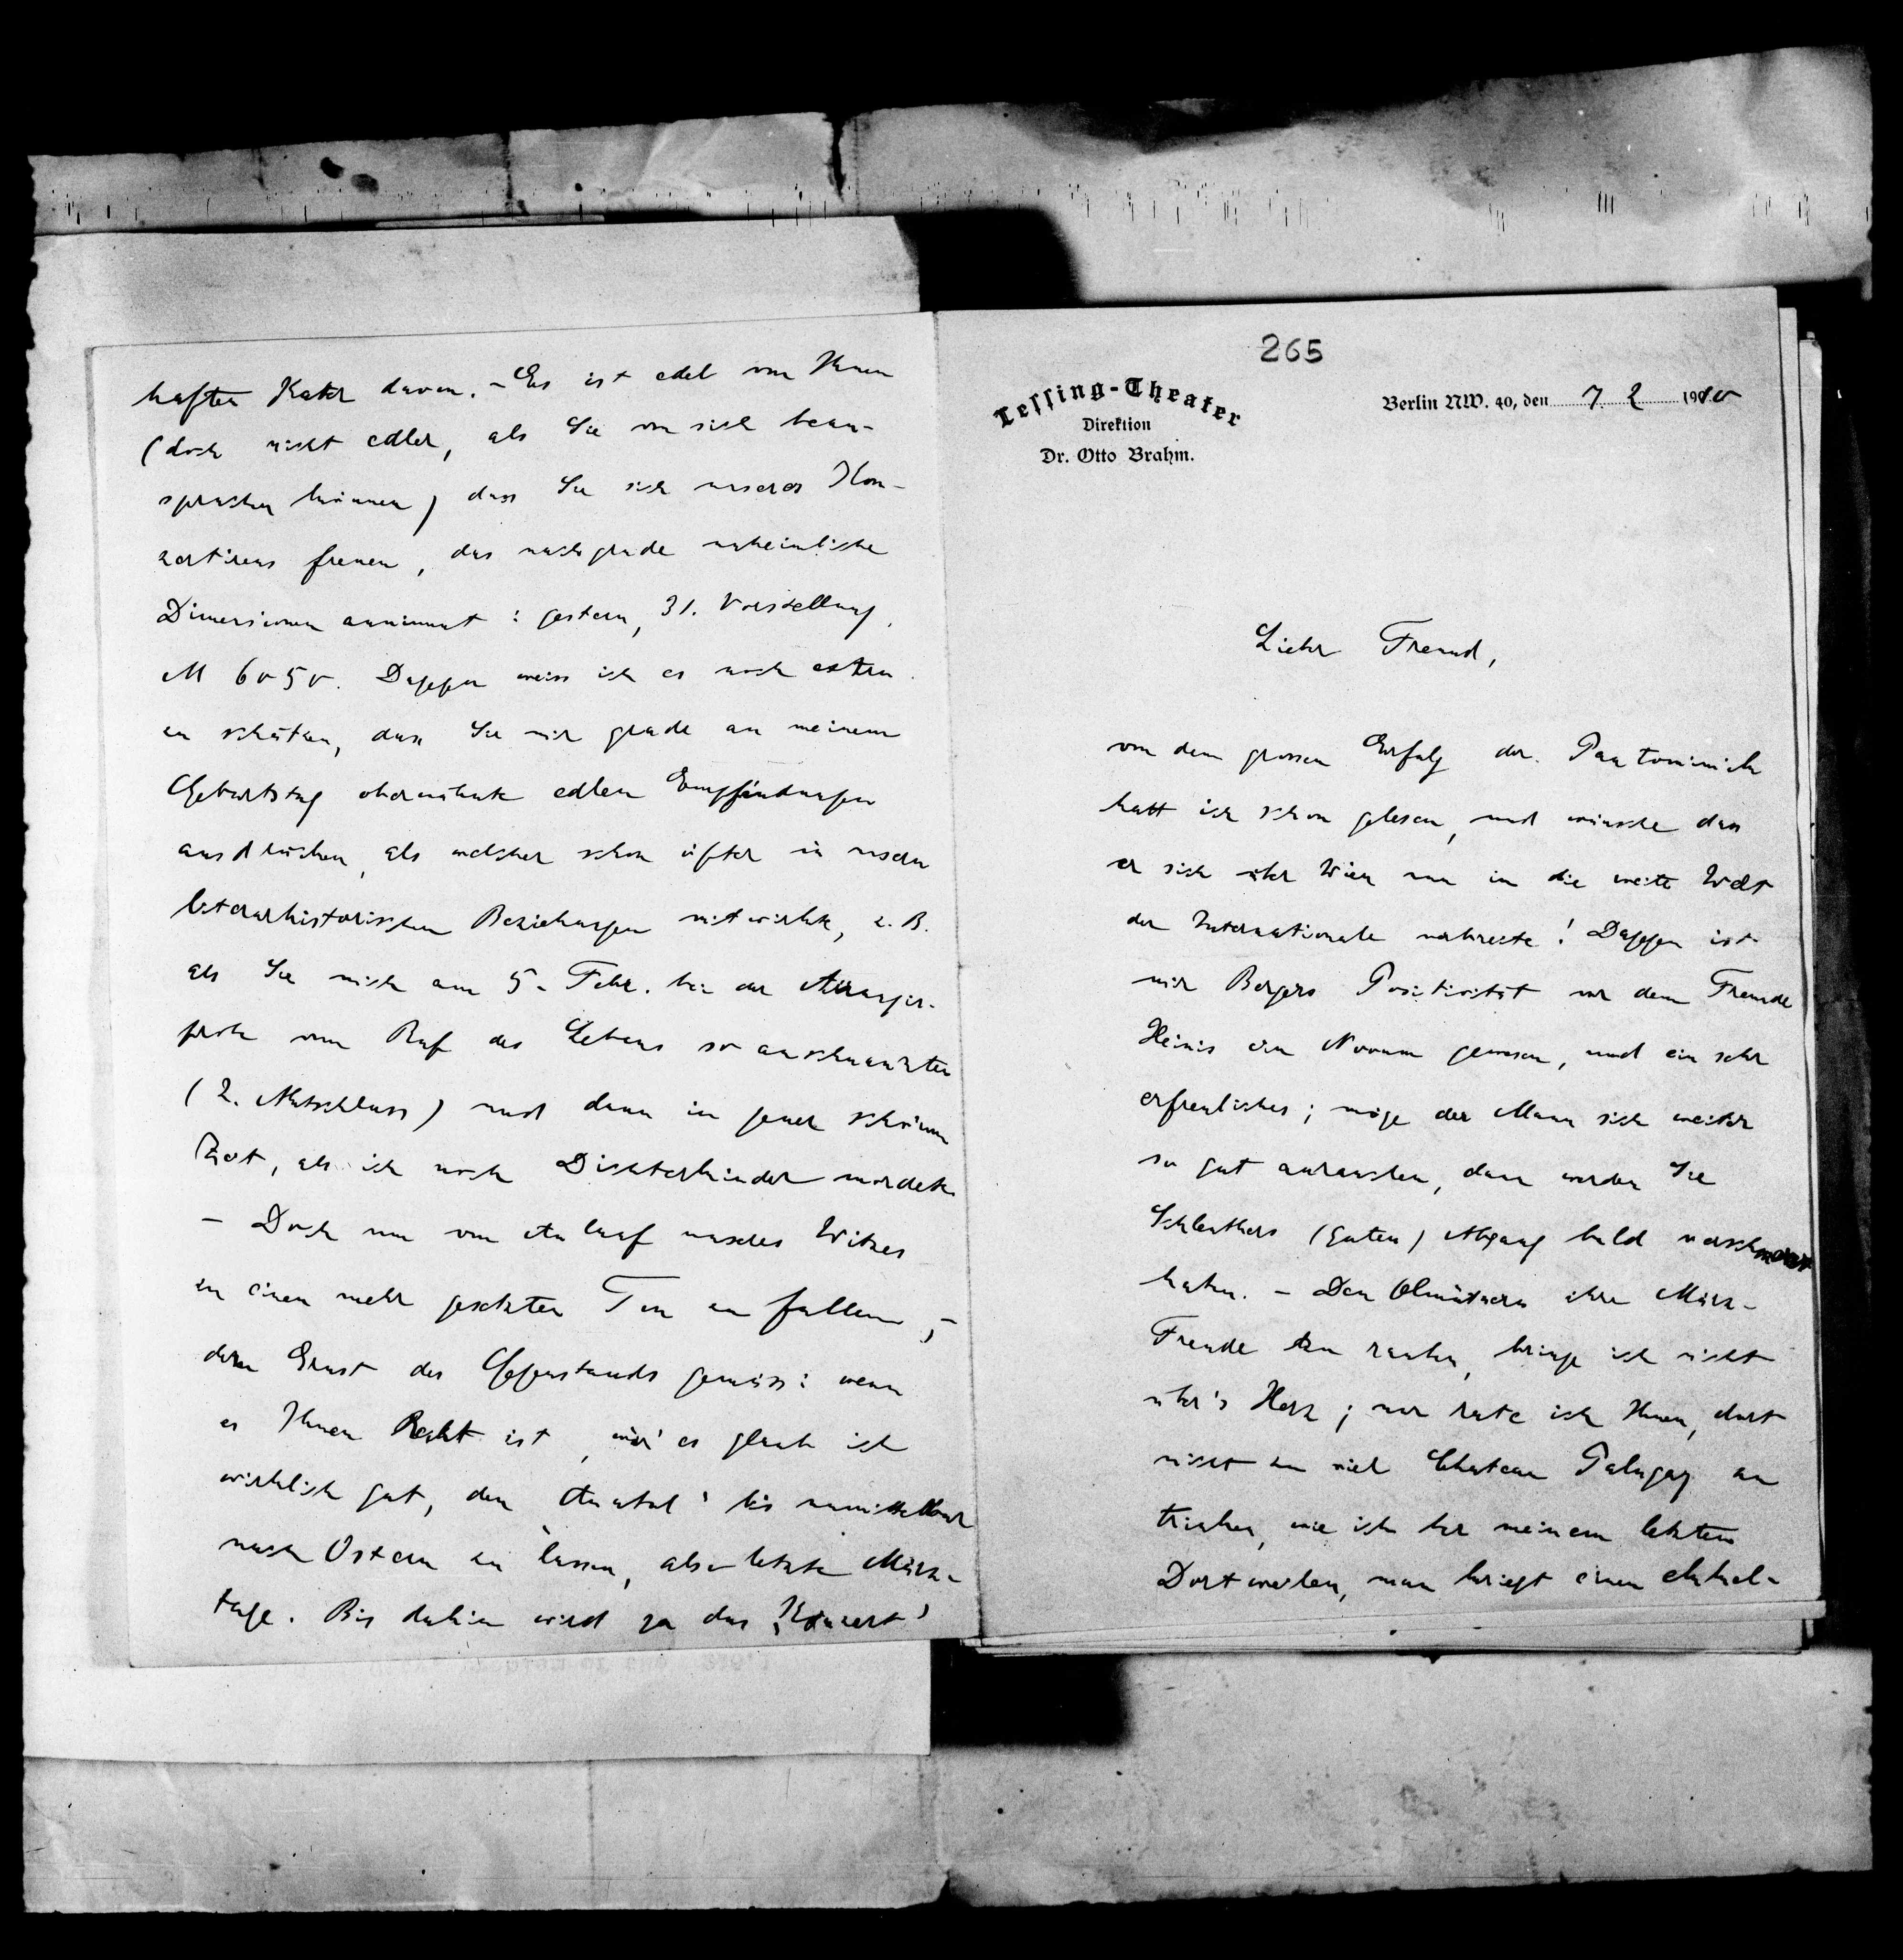 265
Lessing-Theater
Direktion
Dr. Otto Brahm.
Berlin NW. 40, den 7. 2 1910
Lieber Freund,
von dem grossen Erfolg der Pantomimik
hatt ich schon gelesen, und wünsche dass
er sich über Wien nun in die weite Welt
der Internationale verbreite! Dagegen ist
mir Bergers Positivität vor dem Freunde
Heinis ein Novum gewesen, und ein sehr
erfreuliches; möge der Mann sich weiter
so gut auswachsen, dann werden Sie
Schlenthers (guten) Abgang bald verschmerzt
haben. – Den Olmützern ihre März-
Freude zu rauben, bringe ich nicht
über's Herz; nur rate ich Ihnen, dort
nicht zu viel Chateau Palugay zu
trinken, wie ich bei meinem letzten
Dortweilen, man kriegt einen ekkel-
haften Kater davon. – Es ist edel von Ihnen
(doch nicht edler, als Sie von sich bean-
spruchen können) dass Sie sich unseres Kon-
zertirens freuen, das nachgrade unheimliche
Dimensionen annimmt: gestern, 31. Vorstellung,
M 6050. Dagegen weiss ich es noch extra
zu schätzen, dass Sie mir grade an meinem
Geburtstag obererwähnte edlen Empfindungen
ausdrücken, als welcher schon öfter in unsern
literarhistorischen Beziehungen mitwirkte, z. B.
als Sie mich am 5. Febr. bei der Arrangir-
probe vom Ruf des Lebens so anschnauzten
(2. Aktschluss) und dann in jener schönen
Zeit, als ich noch Dichterkinder mordete
– Doch nun vom Anlauf unseres Witzes
in einen mehr gesetzten Ton zu fallen, –
dem Ernst des Gegenstands gemäss: wenn
es Ihnen Recht ist, wär' es glaub ich
wirklich gut, den Anatol' bis unmittelbar
nach Ostern zu lassen, also letzte März-
tage. Bis dahin wird ja das 'Konzert'